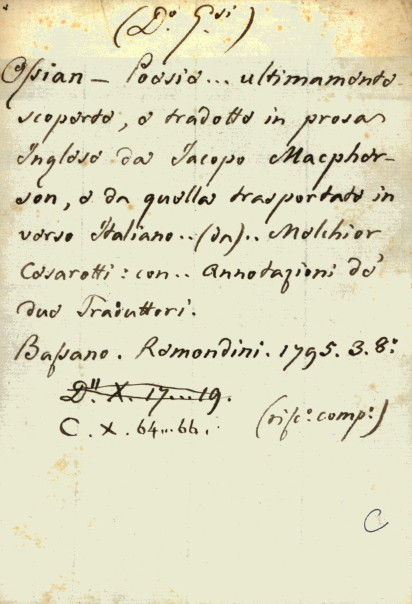 (D.º G.si)
Ossian – Poesie... ultimamente
scoperte, e tradotte in prosa
Inglese da Jacopo Macpher-
son, e da quella trasportate in
verso Italiano..(da).. Melchior
Cesarotti: con.. Annotazioni de'
due Traduttori.
Bassano. Remondini. 1795. 3. 8.º
D.ⁱⁱ X. 17...19.
C. X. 64...66.
(risc.º comp.º)
C